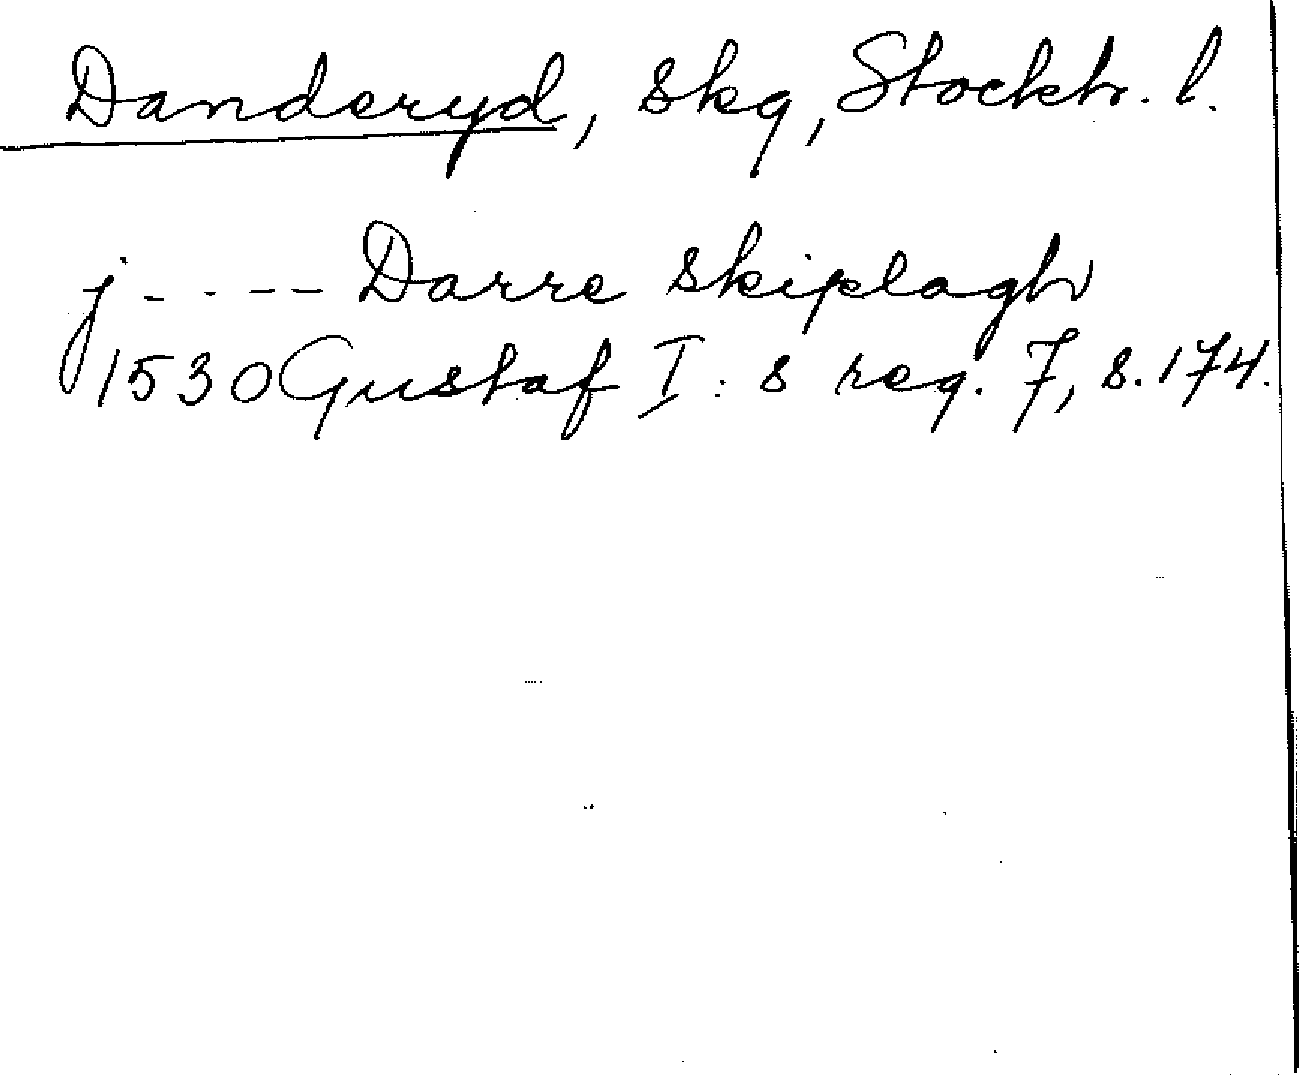 Danderyd, skg, Stockh. l.
j - - - - Darre skiplagh
1530 Gustaf I: s reg. 7, s. 174.